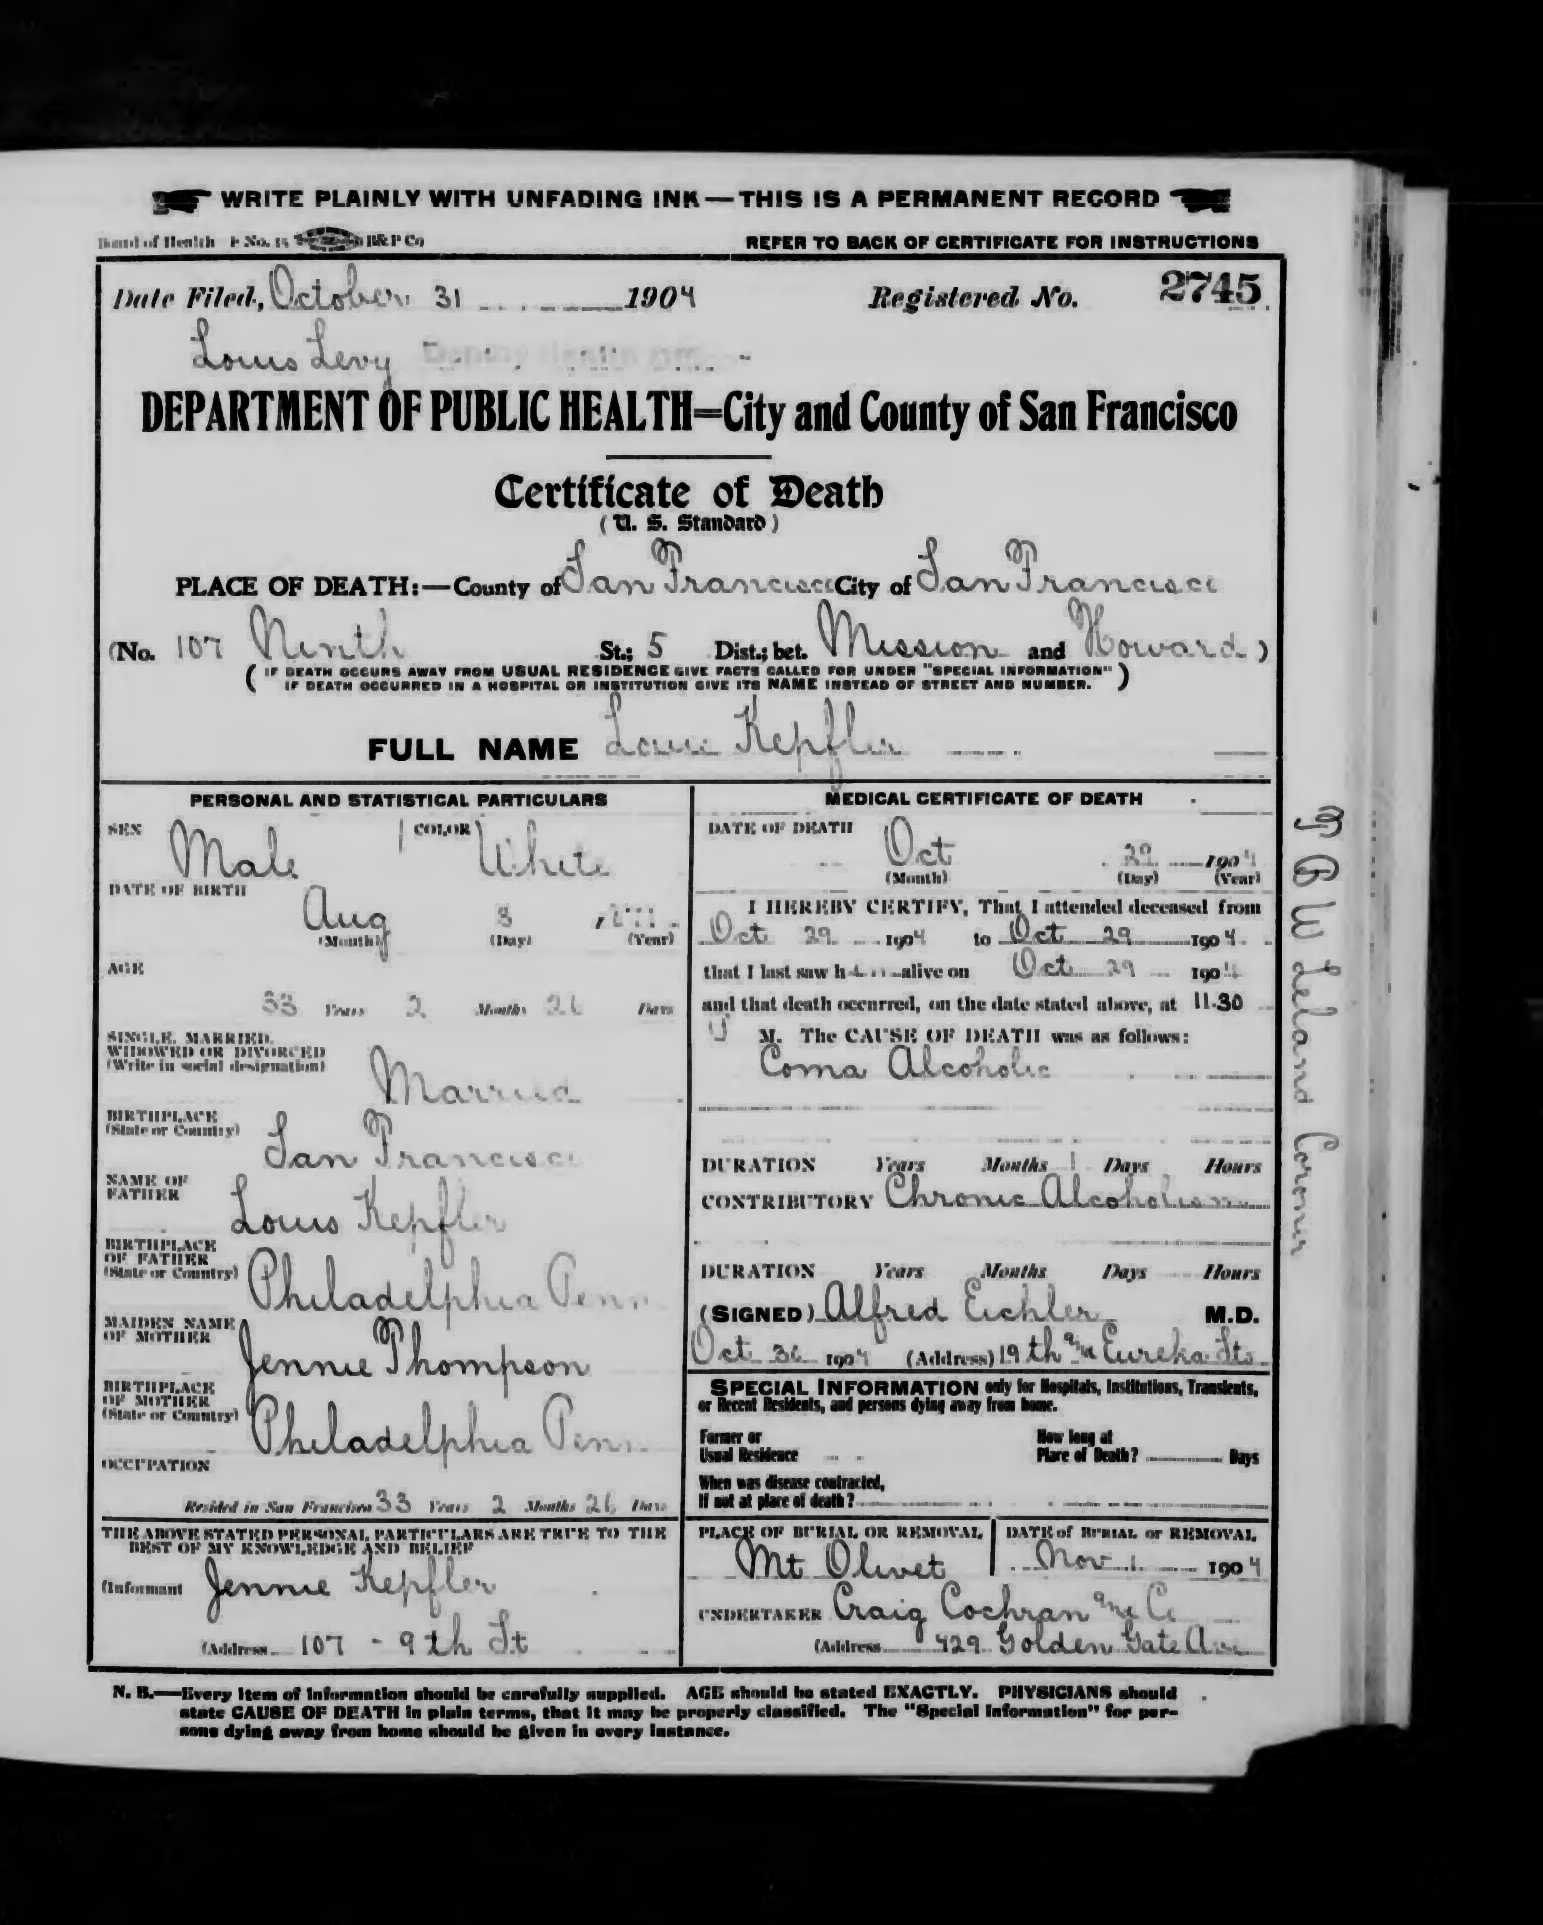 WRITE PLAINLY WITH UNFADING INK — THIS IS A PERMANENT RECORD
Board of Health F No. 15 B&P Co
REFER TO BACK OF CERTIFICATE FOR INSTRUCTIONS
Date Filed, October 31 1904 Registered No. 2745
Louis Levy Deputy Health Officer
DEPARTMENT OF PUBLIC HEALTH=City and County of San Francisco
Certificate of Death
(U. S. Standard)
PLACE OF DEATH:—County of San Francisco City of San Francisco
(No. 107 Ninth St.; 5 Dist.; bet. Mission and Howard)
(IF DEATH OCCURS AWAY FROM USUAL RESIDENCE GIVE FACTS CALLED FOR UNDER "SPECIAL INFORMATION"
IF DEATH OCCURRED IN A HOSPITAL OR INSTITUTION GIVE ITS NAME INSTEAD OF STREET AND NUMBER.)
FULL NAME Louis Kepfler
PERSONAL AND STATISTICAL PARTICULARS
SEX Male COLOR White
DATE OF BIRTH
Aug 3
(Month) (Day) (Year)
AGE
33 Years 2 Months 26 Days
SINGLE, MARRIED,
WIDOWED OR DIVORCED
(Write in social designation)
Married
BIRTHPLACE
(State or Country)
San Francisco
NAME OF
FATHER
Louis Kepfler
BIRTHPLACE
OF FATHER
(State or Country)
Philadelphia Penn
MAIDEN NAME
OF MOTHER
Jennie Thompson
BIRTHPLACE
OF MOTHER
(State or Country)
Philadelphia Penn
OCCUPATION
Resided in San Francisco 33 Years 2 Months 26 Days
THE ABOVE STATED PERSONAL PARTICULARS ARE TRUE TO THE
BEST OF MY KNOWLEDGE AND BELIEF
(Informant Jennie Kepfler
(Address 107 - 9th St
MEDICAL CERTIFICATE OF DEATH
DATE OF DEATH
Oct 29 1904
(Month) (Day) (Year)
I HEREBY CERTIFY, That I attended deceased from
Oct 29 1904 to Oct 29 1904
that I last saw him alive on Oct 29 1904
and that death occurred, on the date stated above, at 11-30
M. The CAUSE OF DEATH was as follows:
Coma Alcoholic
DURATION Years Months 1 Days Hours
CONTRIBUTORY Chronic Alcoholism
DURATION Years Months Days Hours
(SIGNED) Alfred Eichler M.D.
Oct 1904 (Address) 19th and Eureka Sts
SPECIAL INFORMATION only for Hospitals, Institutions, Transients,
or Recent Residents, and persons dying away from home.
Former or
Usual Residence
How long at
Place of Death? Days
When was disease contracted,
If not at place of death?
PLACE OF BURIAL OR REMOVAL
Mt Olivet
DATE of BURIAL or REMOVAL
Nov 1 1904
UNDERTAKER Craig Cochran and Co
(Address 429 Golden Gate Ave
N. B.—Every item of information should be carefully supplied. AGE should be stated EXACTLY. PHYSICIANS should
state CAUSE OF DEATH in plain terms, that it may be properly classified. The "Special Information" for per-
sons dying away from home should be given in every instance.
Leland Coroner